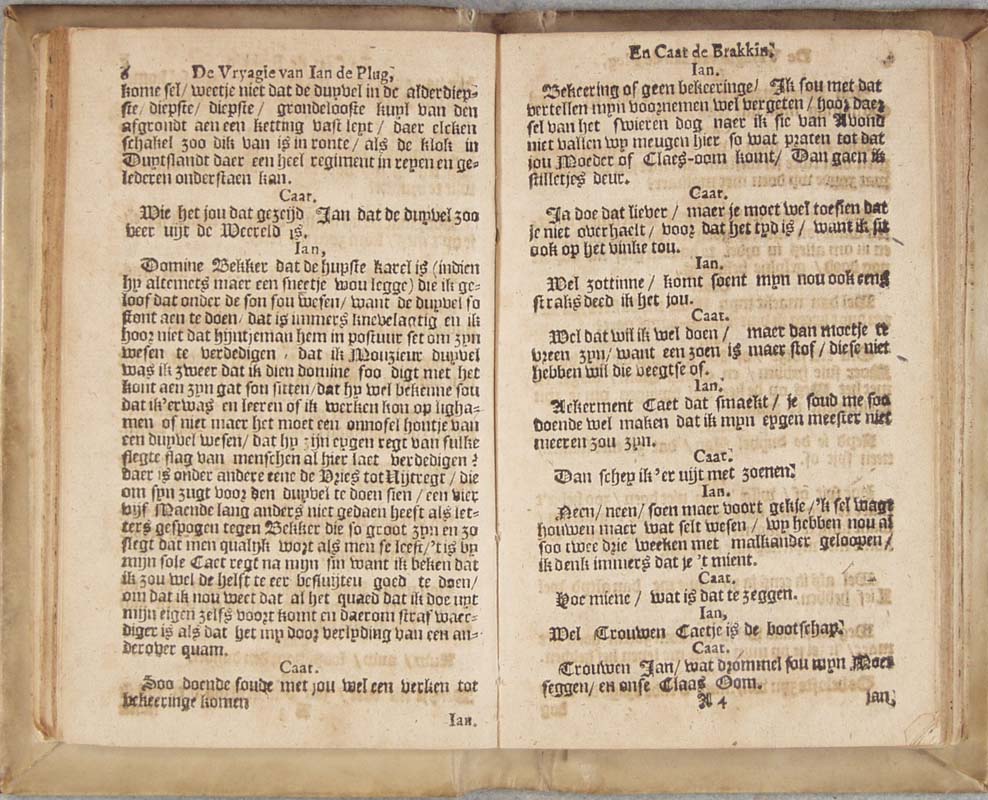 8 De Vryagie van Ian de Plug,
kome sel/ weetje niet dat de duyvel in de alderdiep-
ste/ diepste/ diepste/ grondelooste kuyl van den
afgrondt aen een ketting vast leyt/ daer elcken
schakel zoo dik van is in ronte/ als de klok in
Duytslandt daer een heel regiment in reyen en ge-
lederen onderstaen kan.
Caat.
Wie het jou dat gezeijd Jan dat de duyvel zoo
veer uijt de Weereld is.
Ian,
Domine Bekker dat de hupste karel is (indien
hy altemets maer een sneetje wou legge) die ik ge-
loof dat onder de son sou wesen/ want de duyvel so
stont aen te doen/ dat is immers knevelagtig en ik
hoor niet dat hijntjeman hem in postuur set om zyn
wesen te verdedigen, dat ik Mouzieur duyvel
was ik zweer dat ik dien domine soo digt met het
kont aen zyn gat son sitten/ dat hy wel bekenne sou
dat ik'er was en leeren of ik werken kon op ligha-
men of niet maer het moet een onnosel hontje van
een duyvel wesen/ dat hy zijn eygen regt van sulke
slegte slag van menschen al hier laet verdedigen?
daer is onder andere eene de Vries tot Uijtregt/ die
om syn zugt voor den duyvel te doen sien/ een vier
vijf Maende lang anders niet gedaen heeft als let-
ters gespogen tegen Bekker die so groot zyn en zo
slegt dat men qualijk wort als men se leest/ 't is by
mijn sole Caet regt na mijn sin want ik beken dat
ik zou wel de helft te eer besluijten goed te doen/
om dat ik nou weet dat al het quaed dat ik doe uyt
mijn eigen zelfs voort komt en daerom straf waer-
diger is als dat het my door verlyding van een an-
der over quam.
Caat.
Soo doende soude met jou wel een verken tot
bekeeringe komen
Ian.
En Caat de Brakkin.
Ian.
Bekeering of geen bekeeringe/ Ik sou met dat
vertellen myn voornemen wel vergeten/ hoor daer
sel van het swieren dog naer ik sie van Avond
niet vallen wy meugen hier so wat praten tot dat
jou Moeder of Claes-oom komt/ Dan gaen ik
stilletjes deur.
Caat.
Ja doe dat liever/ maer je moet wel toesien dat
je niet over haelt/ voor dat het tyd is/ want ik sit
ook op het vinke tou.
Ian.
Wel zottinne/ komt soent myn nou ook eens
straks deed ik het jou.
Caat.
Wel dat wil ik wel doen/ maer dan moetje te
vreen zyn/ want een zoen is maer stof/ diese niet
hebben wil die veegtse of.
Ian.
Ackerment Caet dat smaekt/ je soud me soo
doende wel maken dat ik myn eygen meester niet
meeren zou zyn.
Caat.
Dan schey ik'er uijt met zoenen.
Ian.
Neen/ neen/ soen maer voort gekje/ 'k sel wagt
houwen maer wat selt wesen/ wy hebben nou al
soo twee drie weeken met malkander geloopen/
ik denk immers dat je 't mient.
Caat.
Hoe miene/ wat is dat te zeggen.
Ian,
Wel Trouwen Caetje is de bootschap.
Caat.
Trouwen Jan/ wat drommel sou myn Moer
seggen/ en onse Claas Oom.
A 4 Ian,